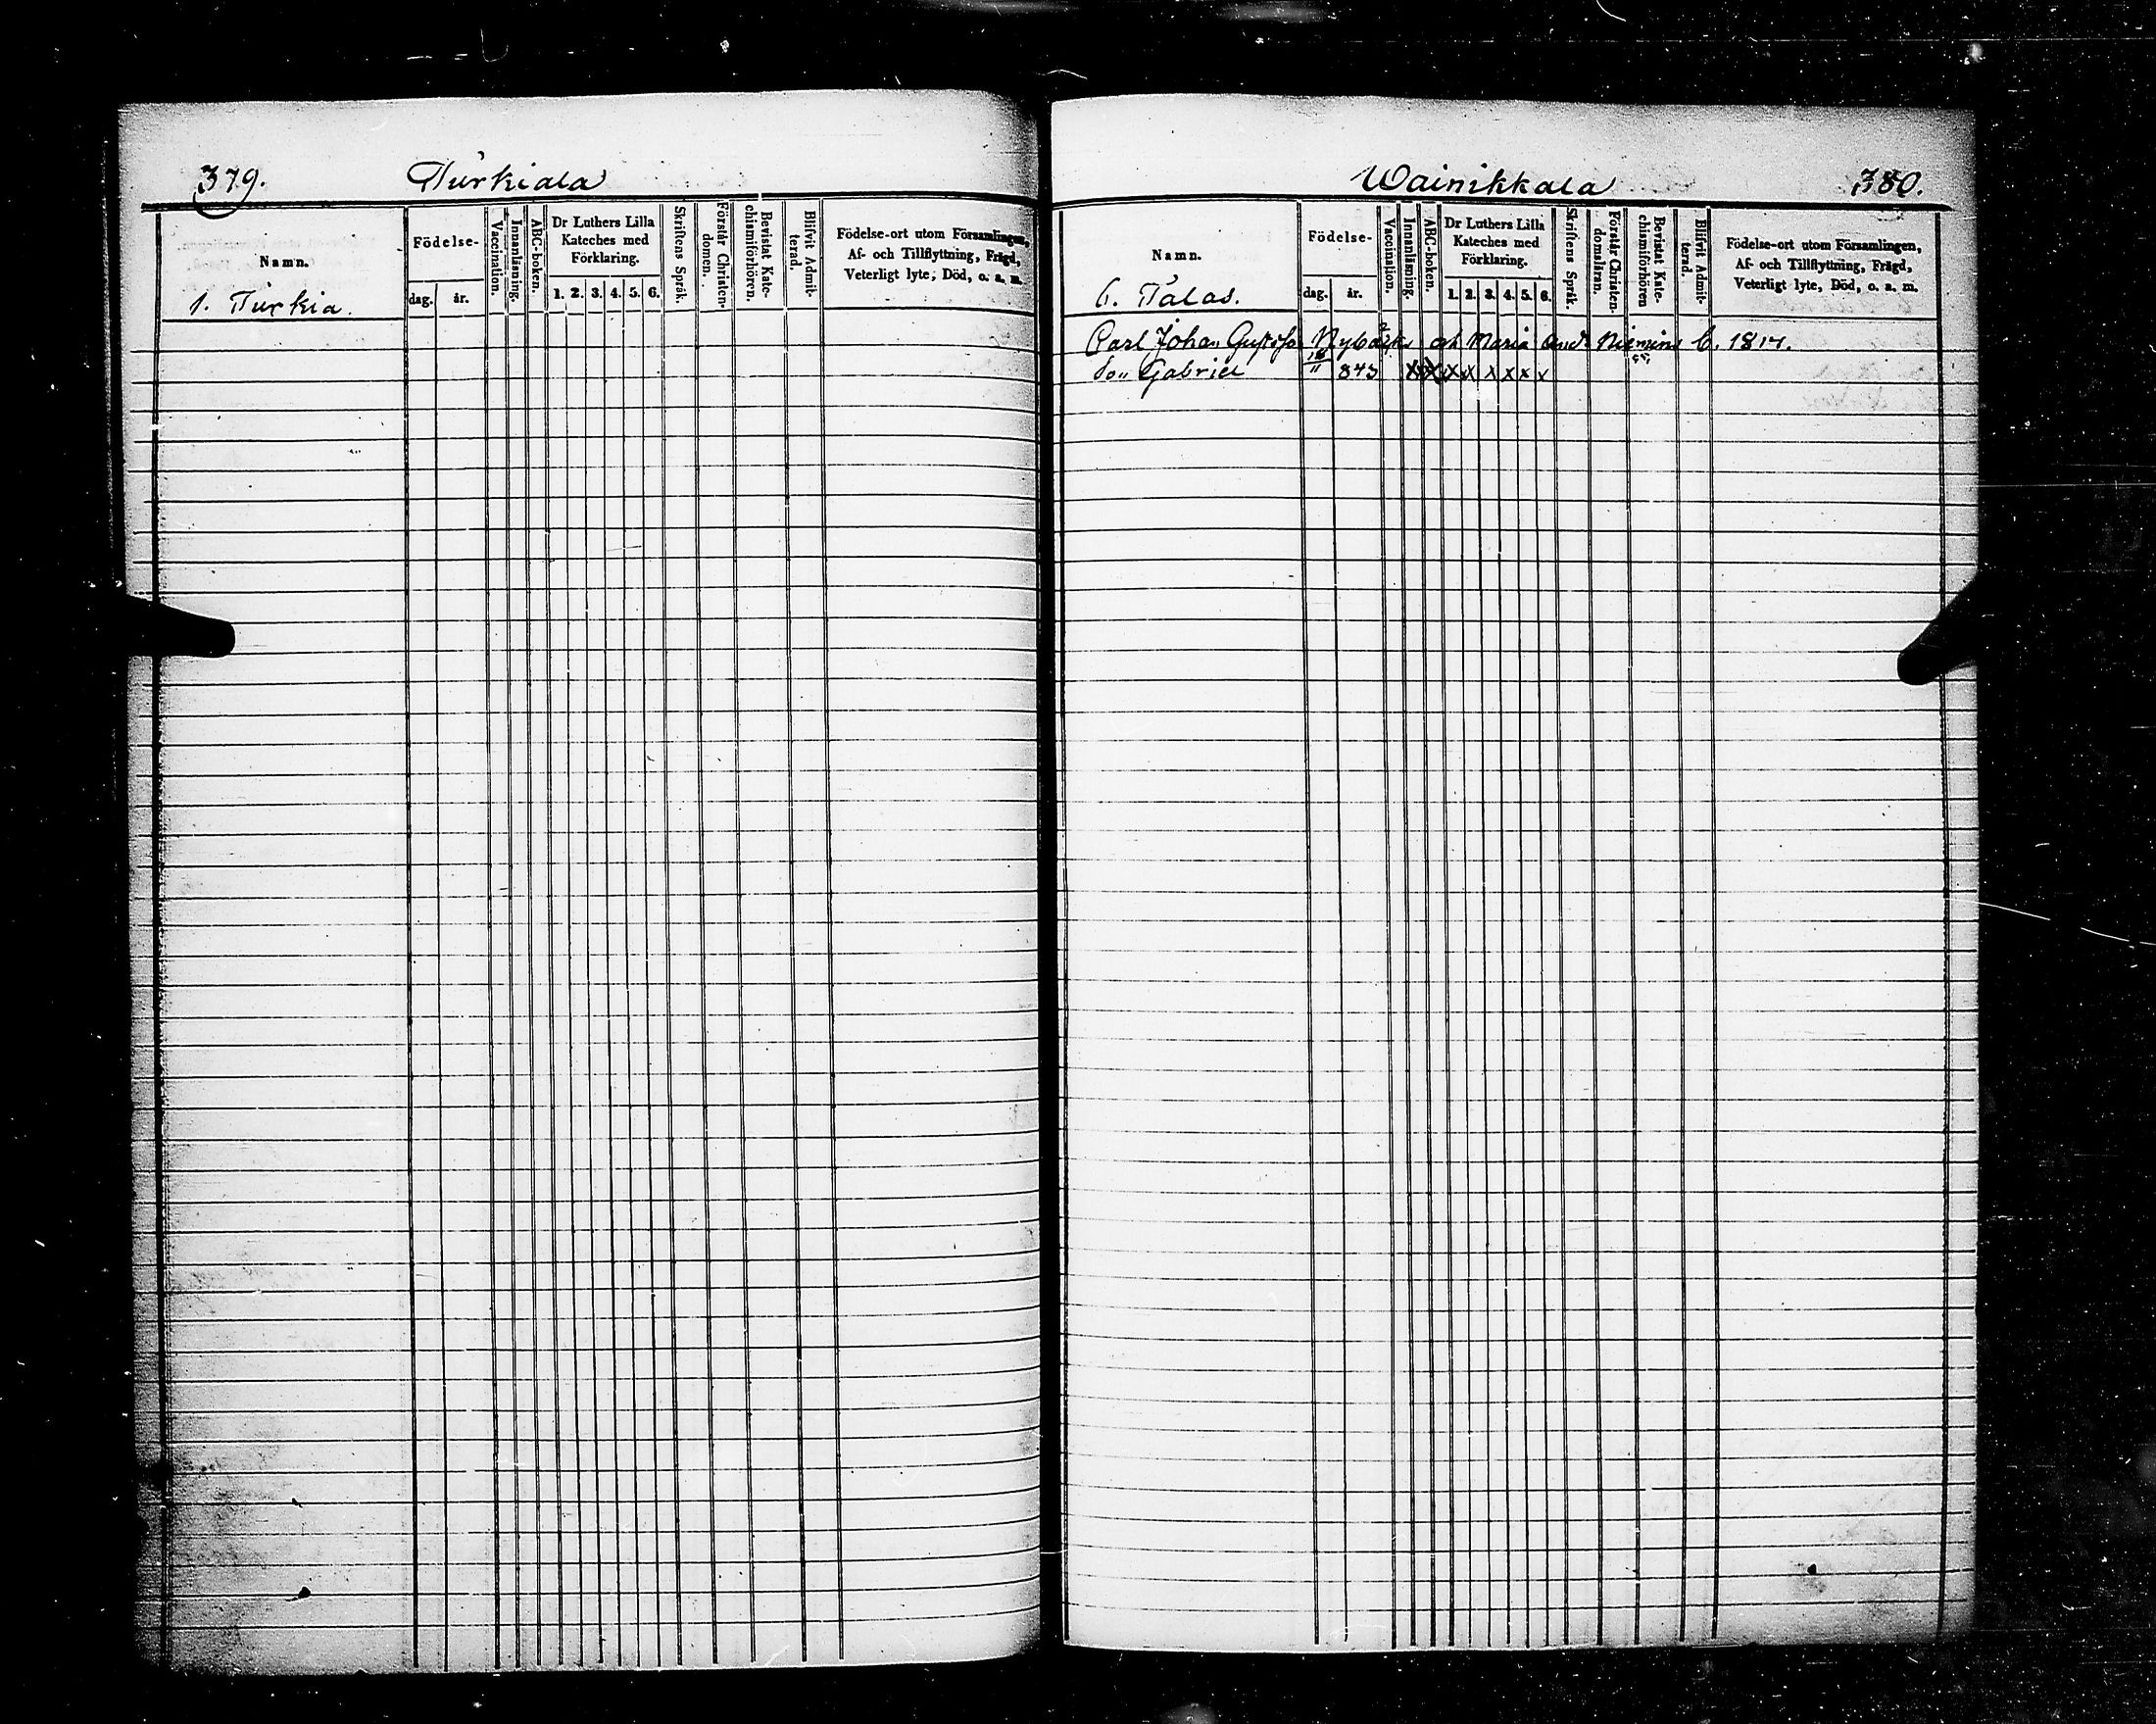 379. Turkiala
Namn.
1. Turkia.
Födelse-
dag. år.
Vaccination.
Innanläsning.
ABC-boken.
Dr Luthers Lilla
Kateches med
Förklaring.
1. 2. 3. 4. 5. 6.
Skriftens Språk.
Förstår Christen-
domen.
Bevistat Kate-
chismiförhören.
Blifvit Admit-
terad.
Födelse-ort utom Församlingen,
Af- och Tillflyttning, Frägd,
Veterligt lyte, Död, o. s. m.
Wainikkala 380.
Namn.
6. Talas.
Födelse-
dag. år.
Vaccination.
Innanläsning.
ABC-boken.
Dr Luthers Lilla
Kateches med
Förklaring.
1. 2. 3. 4. 5. 6.
Skriftens Språk.
Förstår Christen-
domsläran.
Bevistat Kate-
chismiförhören
Blifvit Admit-
terad.
Födelse-ort utom Församlingen,
Af- och Tillflyttning, Frägd,
Veterligt lyte, Död, o. s. m.
Carl Johan Maria
Gabriel 843 X X X X X X X X